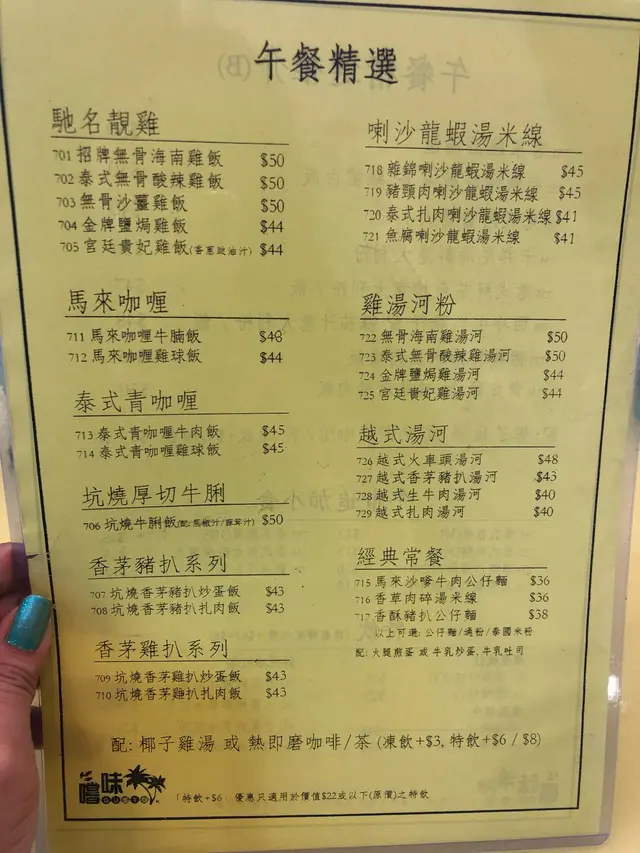 午餐精選
馳名靚雞
701 招牌無骨海南雞飯 $50
702 泰式無骨酸辣雞飯 $50
703 無骨沙薑雞飯 $50
704 金牌鹽焗雞飯 $44
705 宮廷貴妃雞飯(香蔥豉油汁) $44
馬來咖喱
711 馬來咖喱牛腩飯 $48
712 馬來咖喱雞球飯 $44
泰式青咖喱
713 泰式青咖喱牛肉飯 $45
714 泰式青咖喱雞球飯 $45
坑燒厚切牛脷
706 坑燒牛脷飯(配:黑椒汁/蘑茸汁) $50
香茅豬扒系列
707 坑燒香茅豬扒炒蛋飯 $43
708 坑燒香茅豬扒扎肉飯 $43
香茅雞扒系列
709 坑燒香茅雞扒炒蛋飯 $43
710 坑燒香茅雞扒扎肉飯 $43
喇沙龍蝦湯米線
718 雜錦喇沙龍蝦湯米線 $45
719 豬頸肉喇沙龍蝦湯米線 $45
720 泰式扎肉喇沙龍蝦湯米線 $41
721 魚腐喇沙龍蝦湯米線 $41
雞湯河粉
722 無骨海南雞湯河 $50
723 泰式無骨酸辣雞湯河 $50
724 金牌鹽焗雞湯河 $44
725 宮廷貴妃雞湯河 $44
越式湯河
726 越式火車頭湯河 $48
727 越式香茅豬扒湯河 $43
728 越式生牛肉湯河 $40
729 越式扎肉湯河 $40
經典常餐
715 馬來沙嗲牛肉公仔麵 $36
716 香草肉碎湯米線 $36
717 香酥豬扒公仔麵 $38
以上可選: 公仔麵/通粉/泰國米粉
配: 火腿煎蛋 或 牛乳炒蛋,牛乳吐司
配: 椰子雞湯 或 熱即磨咖啡/茶 (凍飲+$3, 特飲+$6 / $8)
嚐味
GUSTO
「特飲+$6 優惠只適用於價值$22或以下(原價)之特飲